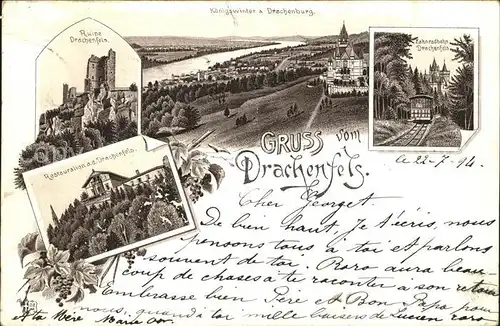 Königswinter u. Drachenburg.
Ruine
Drachenfels.
Zahnradbahn
Drachenfels
Restauration a.d. Drachenfels.
Gruss vom
Drachenfels.
le 22-7-94.
Cher Georget
De bien haut, Je t'écris, nous
pensons tous à toi et parlons
souvent de toi. Roro aura beau-
coup de choses à te raconter à son retour
Embrasse bien Père et Bon Papa pour
nous, quand à toi mille baisers de Lucien roro
et ta Mère